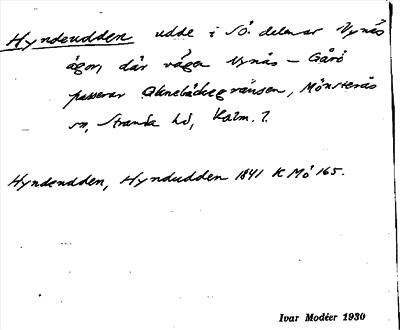 Hyndeudden udde i SÖ. delen av Nynäs
ägor, där vägen Nynäs – Gårö
passerar Oknebäcksgränsen, Mönsterås
sn, Stranda hd, Kalm. l.
Hyndeudden, Hynduddden 1841 K Mö 165.
Ivar Modéer 1930